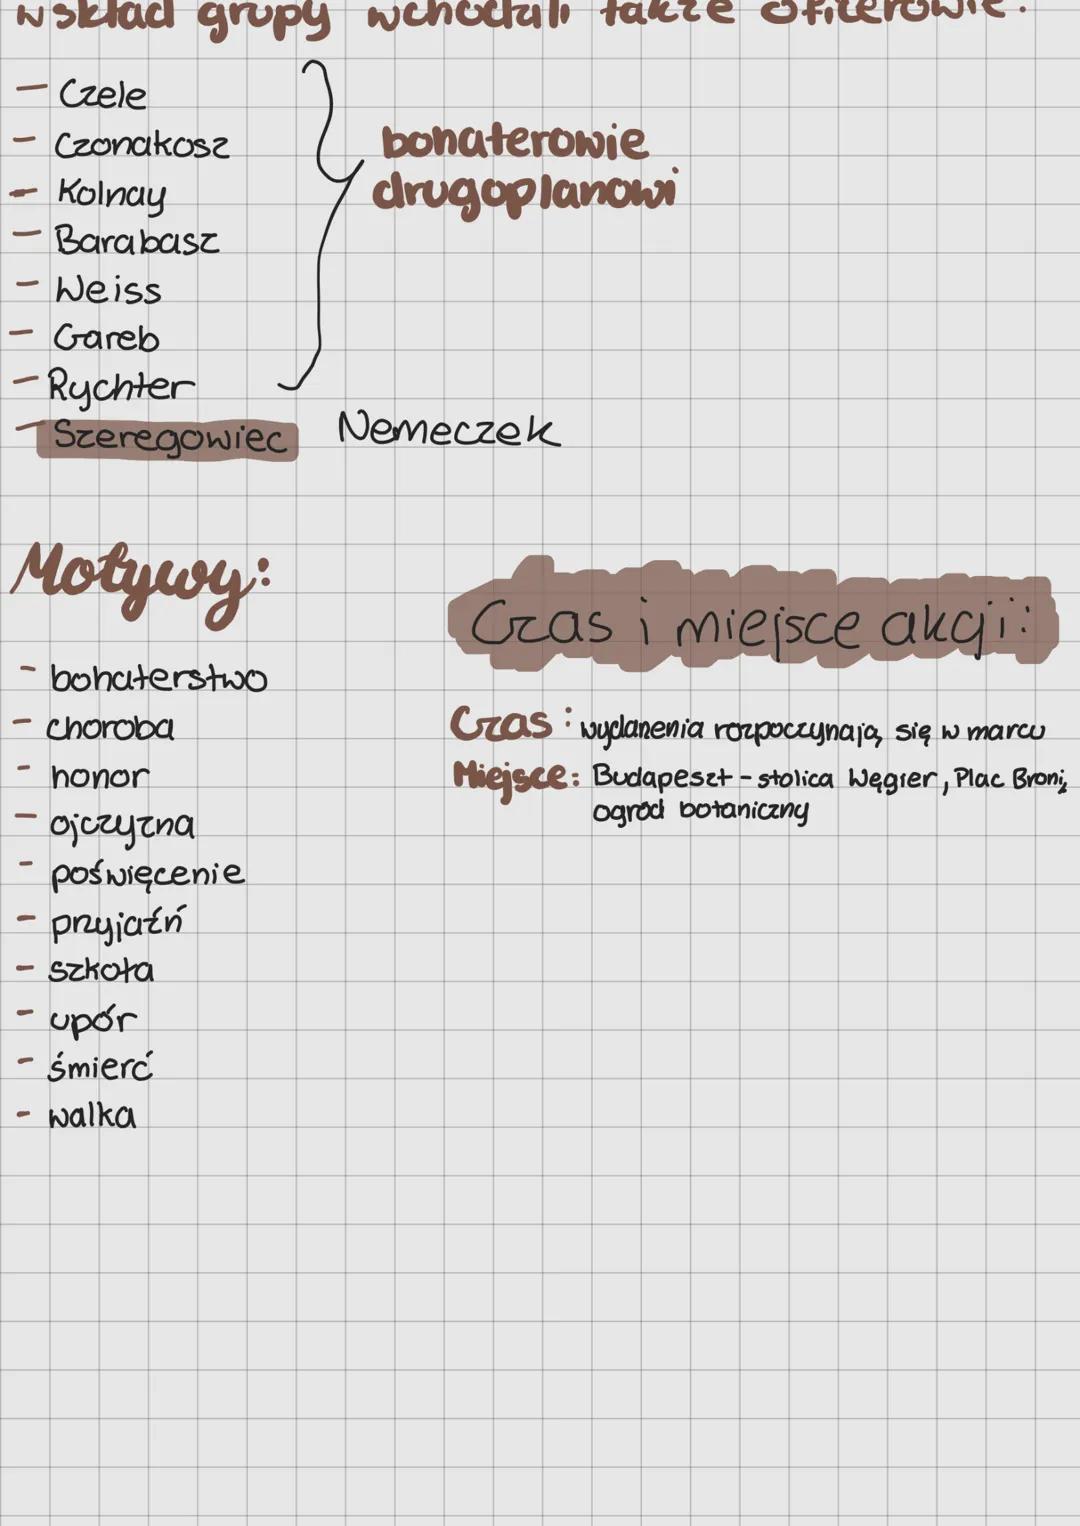 w skład grupy wchodzili także oficerowie:
- Czele
- Czonakosz
- Kolnay
- Barabasz
- Weiss
- Gareb
- Rychter
bohaterowie
drugoplanowi
- Szeregowiec Nemeczek
Motywy:
- bohaterstwo
- choroba
- honor
- ojczyzna
- poświęcenie
- przyjaźń
- szkoła
- upór
- śmierć
- walka
Czas i miejsce akcji:
Czas: wydarzenia rozpoczynają się w marcu
Miejsce: Budapeszt - stolica Węgier, Plac Broni,
ogród botaniczny